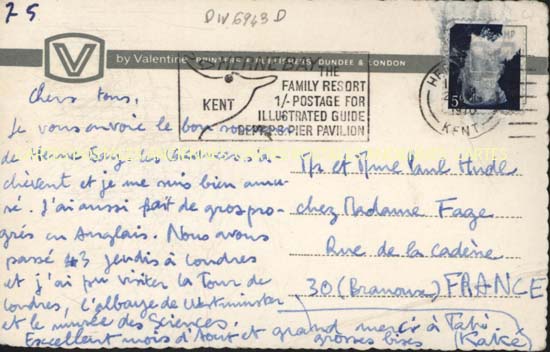 75
DIV6943D
V by Valentine PRINTERS & PUBLISHERS, DUNDEE & LONDON
HERNE BAY THE
FAMILY RESORT
1/- POSTAGE FOR
ILLUSTRATED GUIDE
DEPT PS PIER PAVILION
KENT
1970
KENT
5
Chers tous,
Je vous envoie le bon souvenir
de Herne Bay. Les vacances s'a-
chèvent et je me suis bien amu-
sé. J'ai aussi fait de gros pro-
grès en Anglais. Nous avons
passé 3 jeudis à Londres
et j'ai pu visiter la Tour de
Londres, l'abbaye de Westminster
et le musée des Sciences.
Excellent mois d'Août et grand merci à
grosses bises
Mr et Mme Paul
chez Madame Fage
Rue de la cadène
30 (Branoux) FRANCE